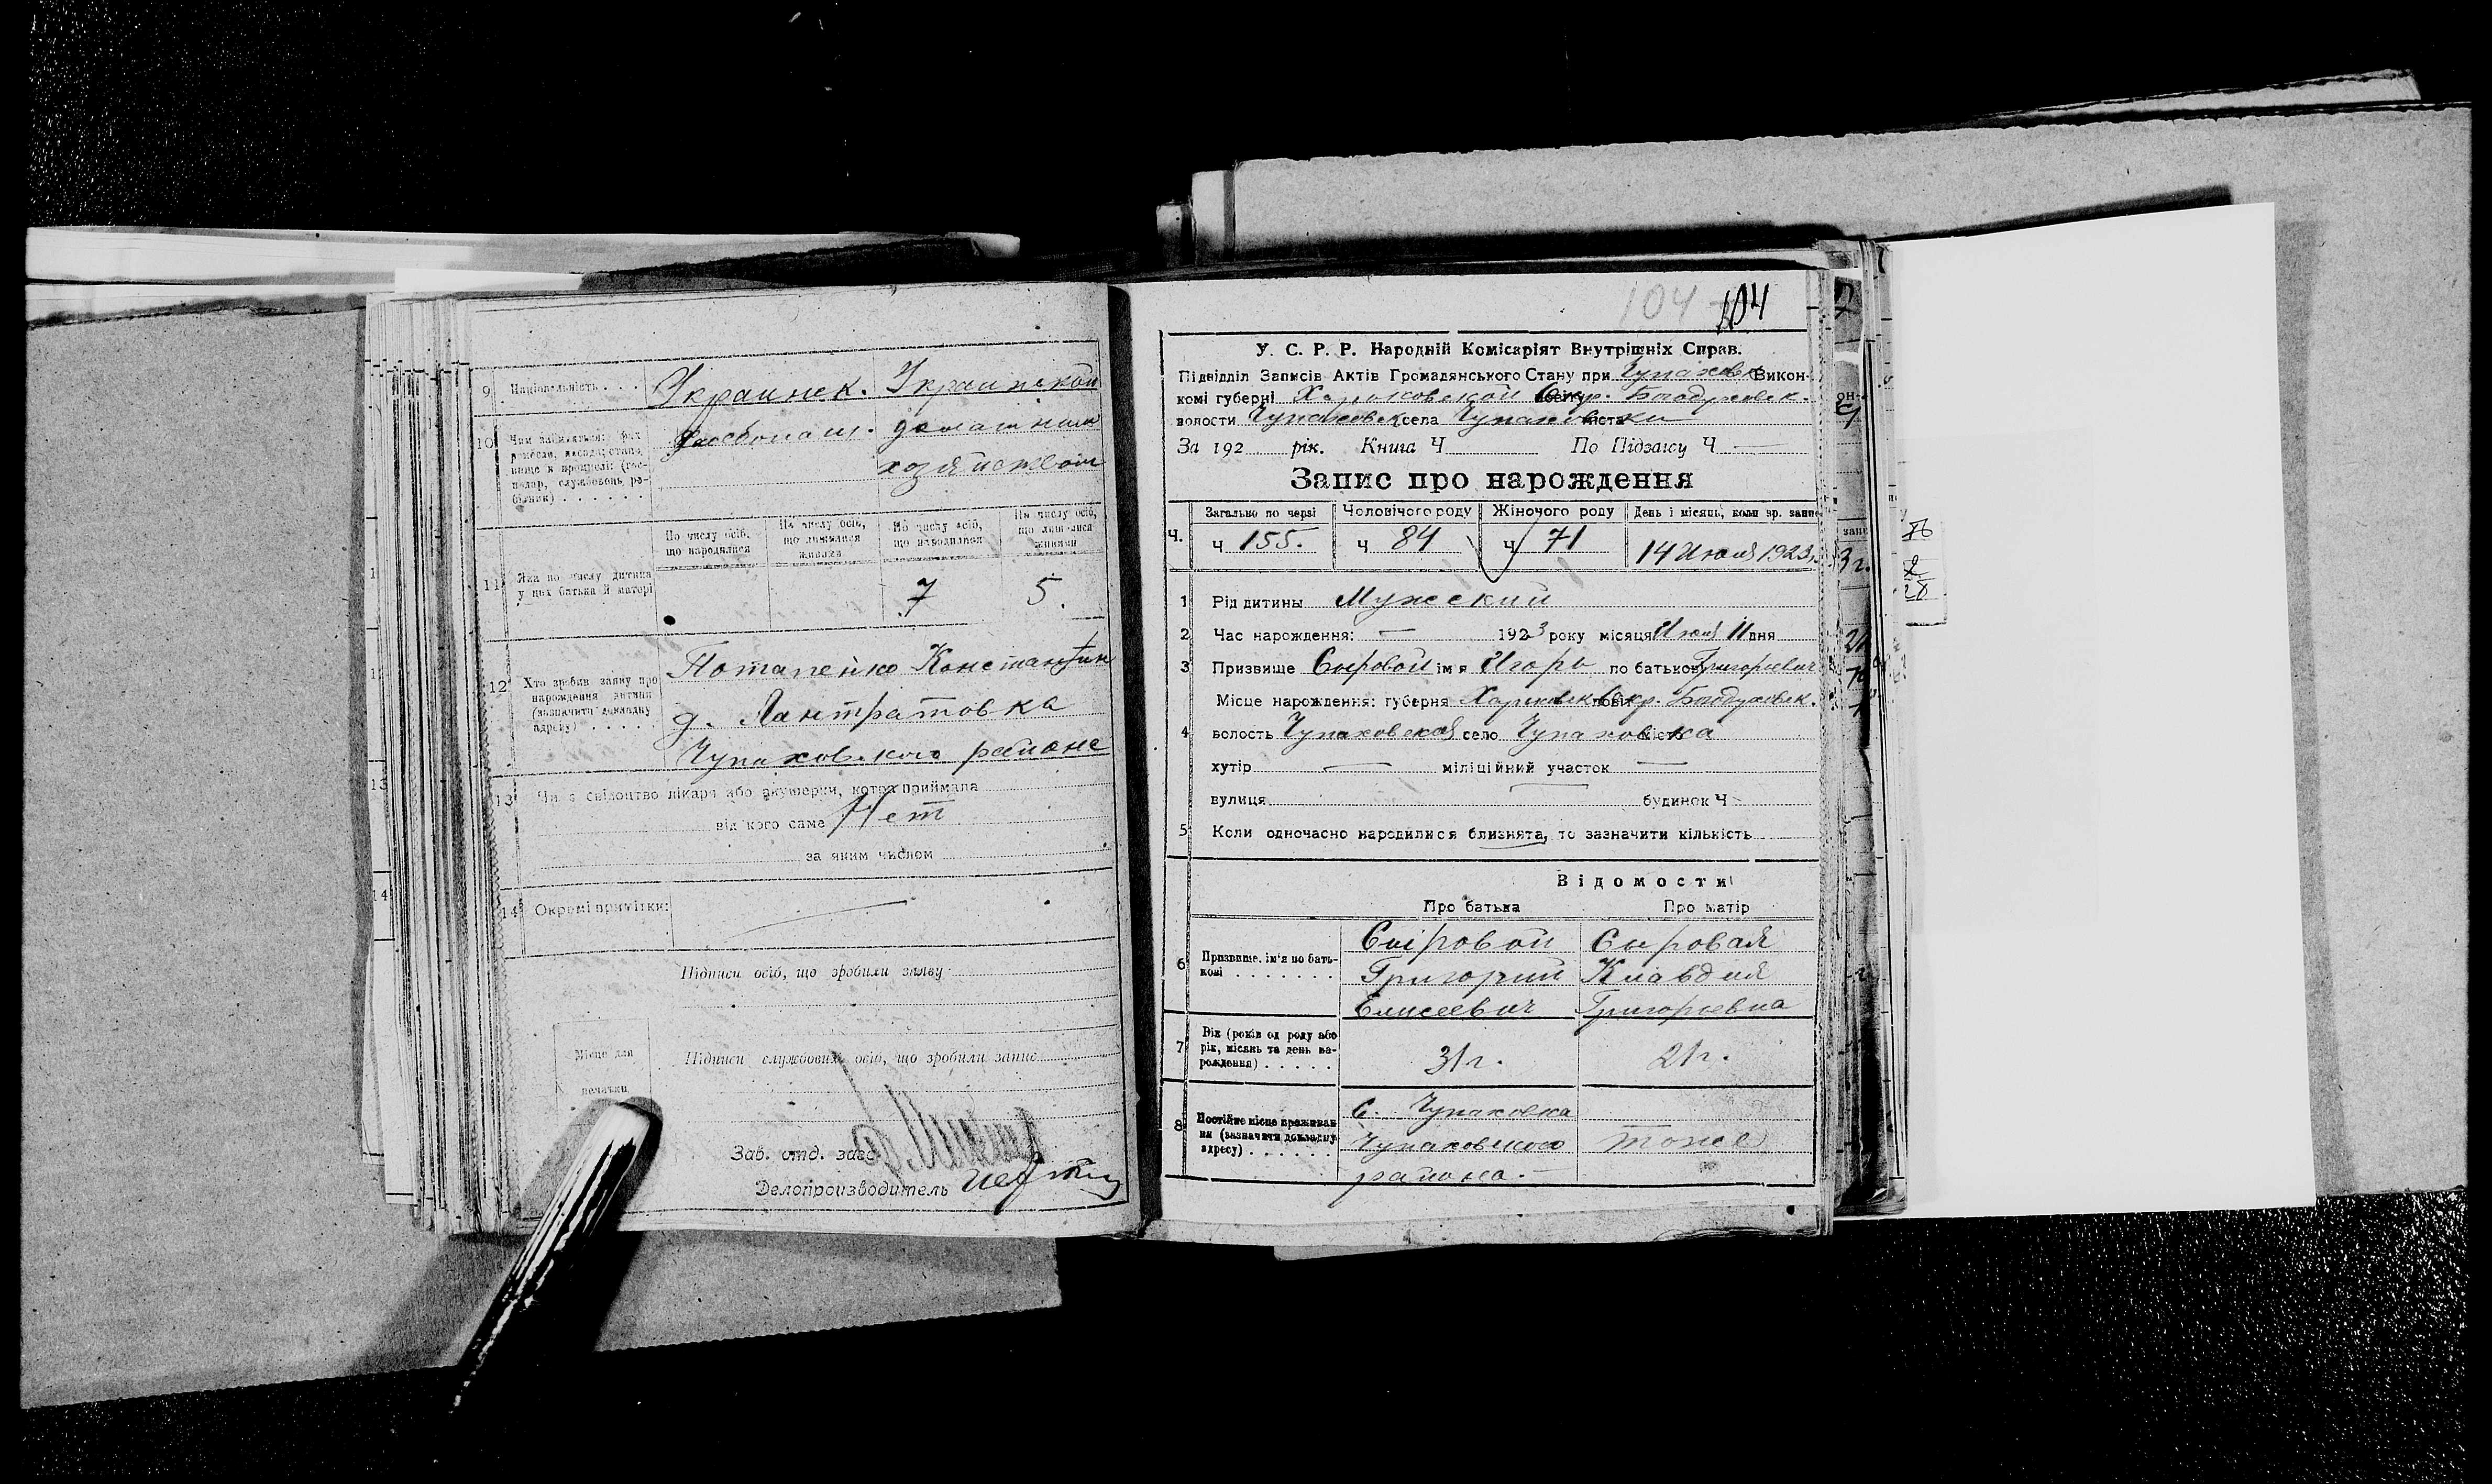 9 Національність . . . Украинск. Украинской
10 Чим займається: фах хлебопаш. домашним
ремесло,
хозяйством
(гос-
подар, службовець, ро-
бітник) . . . . . .
По числу осіб, що народилися
На числу осіб, що лишилися живими
По числу осіб, що народилися
На числу осіб, що лишилися живими
11 Яка по числу дитина у цих батька й матері 7 5.
12 Хто зробив заяву про нарождення дитини (зазначити докладну адресу) . . . .
Потапенко Константин
д. Лантратовка
Чупаховского района
13 Чи є свідоцтво лікаря або акушерки, котра приймала
від кого саме Нет
за яким числом
14 Окремі примітки:
Підписи осіб, що зробили заяву
Місце для печатки
Підписи службових осіб, що зробили запис
Зав. отд. загс
Делопроизводитель
104 104
У. С. Р. Р. Народній Комісаріят Внутрішніх Справ.
Підвідділ Записів Актів Громадянського Стану при Чупаховск Викон-
комі губерні Харьковской Окр. Богодуховск.
волости Чупаховск села Чупаховки
За 192 рік. Книга Ч По Підзаису Ч —
Запис про нарождення
Загально по черзі Чоловічого роду Жіночого роду День і місяць, коли зр. запис
Ч. Ч 155. Ч 84 Ч 71 14 Июля 1923 г.
1 Рід дитини Мужеский
2 Час нарождення: — 1923 року місяця Июля 11 дня
3 Призвище Сыровой ім'я Игорь по батькові Григорьевич
Місце нарождення: губерня Харьковск Окр. Богодуховск.
4 волость Чупаховская село Чупаховка
хутір — міліційний участок —
вулиця — будинок Ч —
5 Коли одночасно народилися близнята, то зазначити кількість
Відомости
Про батька Про матір
6 Призвище, ім'я по батькові . . . . . . .
Сыровой Сыровая
Григорий Клавдия
Елисеевич Григорьевна
7 Вік (років од роду або рік, місяць та день нарождення) . . . . . 31 г. 21 г.
8 Постійне місце проживання (зазначити докладну адресу) . . . . . .
с. Чупаховка
Чупаховского тоже
района. —